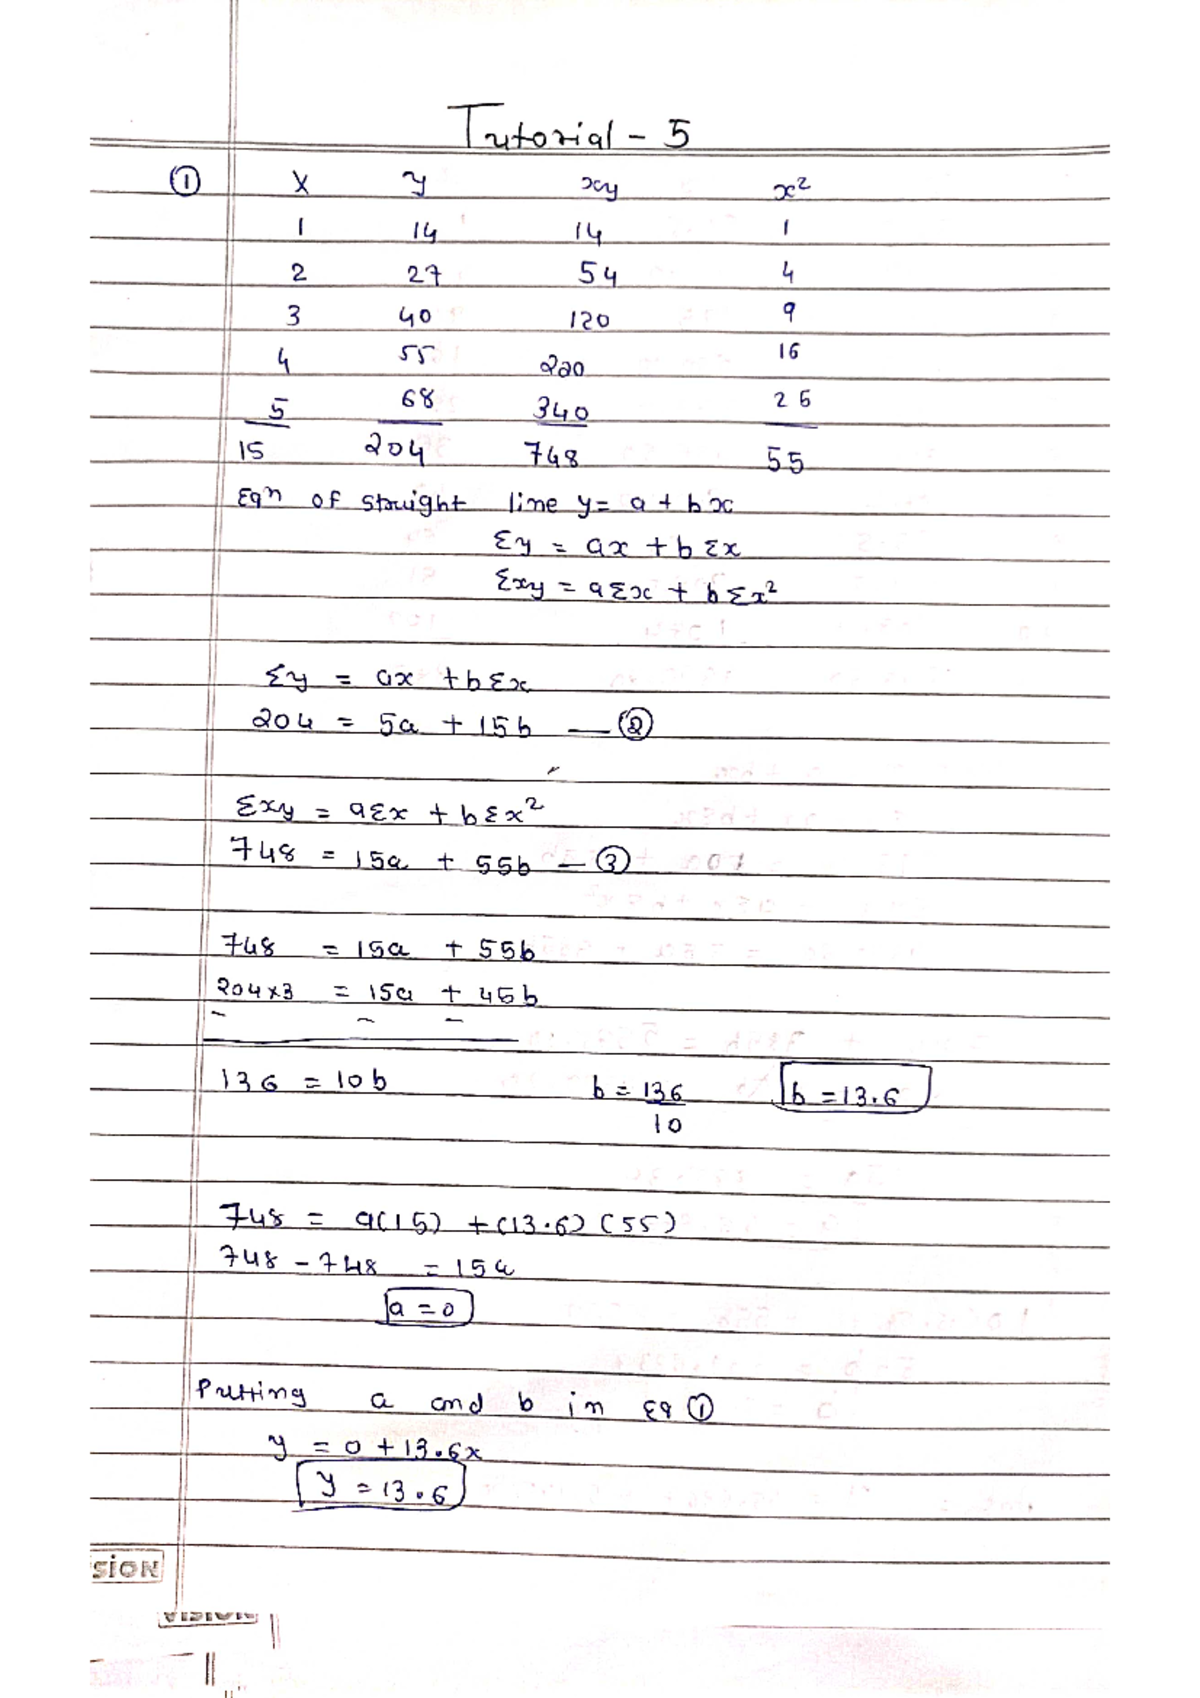 Tutorial - 5
① X y xy x²
1 14 14 1
2 27 54 4
3 40 120 9
4 55 220 16
5 68 340 25
15 204 748 55
Eqn of straight line y = a + bx
Σy = ax + bΣx
Σxy = aΣx + bΣx²
Σy = ax + bΣx
204 = 5a + 15b — ②
Σxy = aΣx + bΣx²
748 = 15a + 55b — ③
748 = 15a + 55b
204×3 = 15a + 45b
- - -
136 = 10b b = 136/10 b = 13.6
748 = a(15) + (13.6)(55)
748 - 748 = 15a
a = 0
Putting a and b in Eq ①
y = 0 + 13.6x
y = 13.6
SION